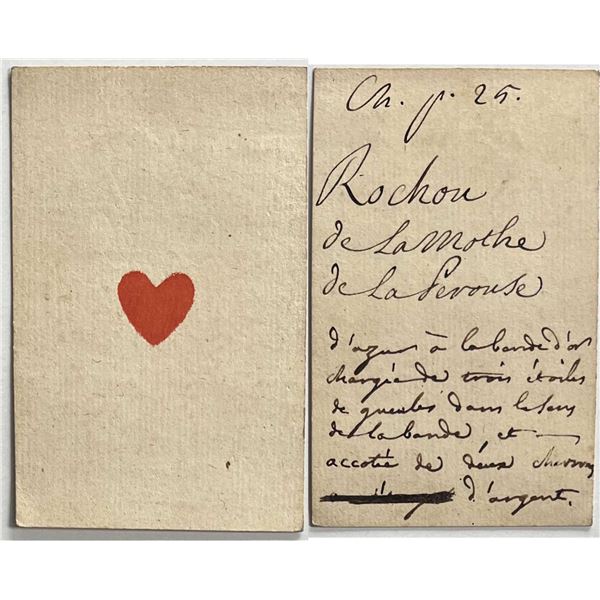 Ch. p. 25.
Rochon
de La Mothe
de La Perouse
d'azur à la bande d'or
chargée de trois étoiles
de gueules dans le sens
de la bande, et
accotée de deux
d'argent.